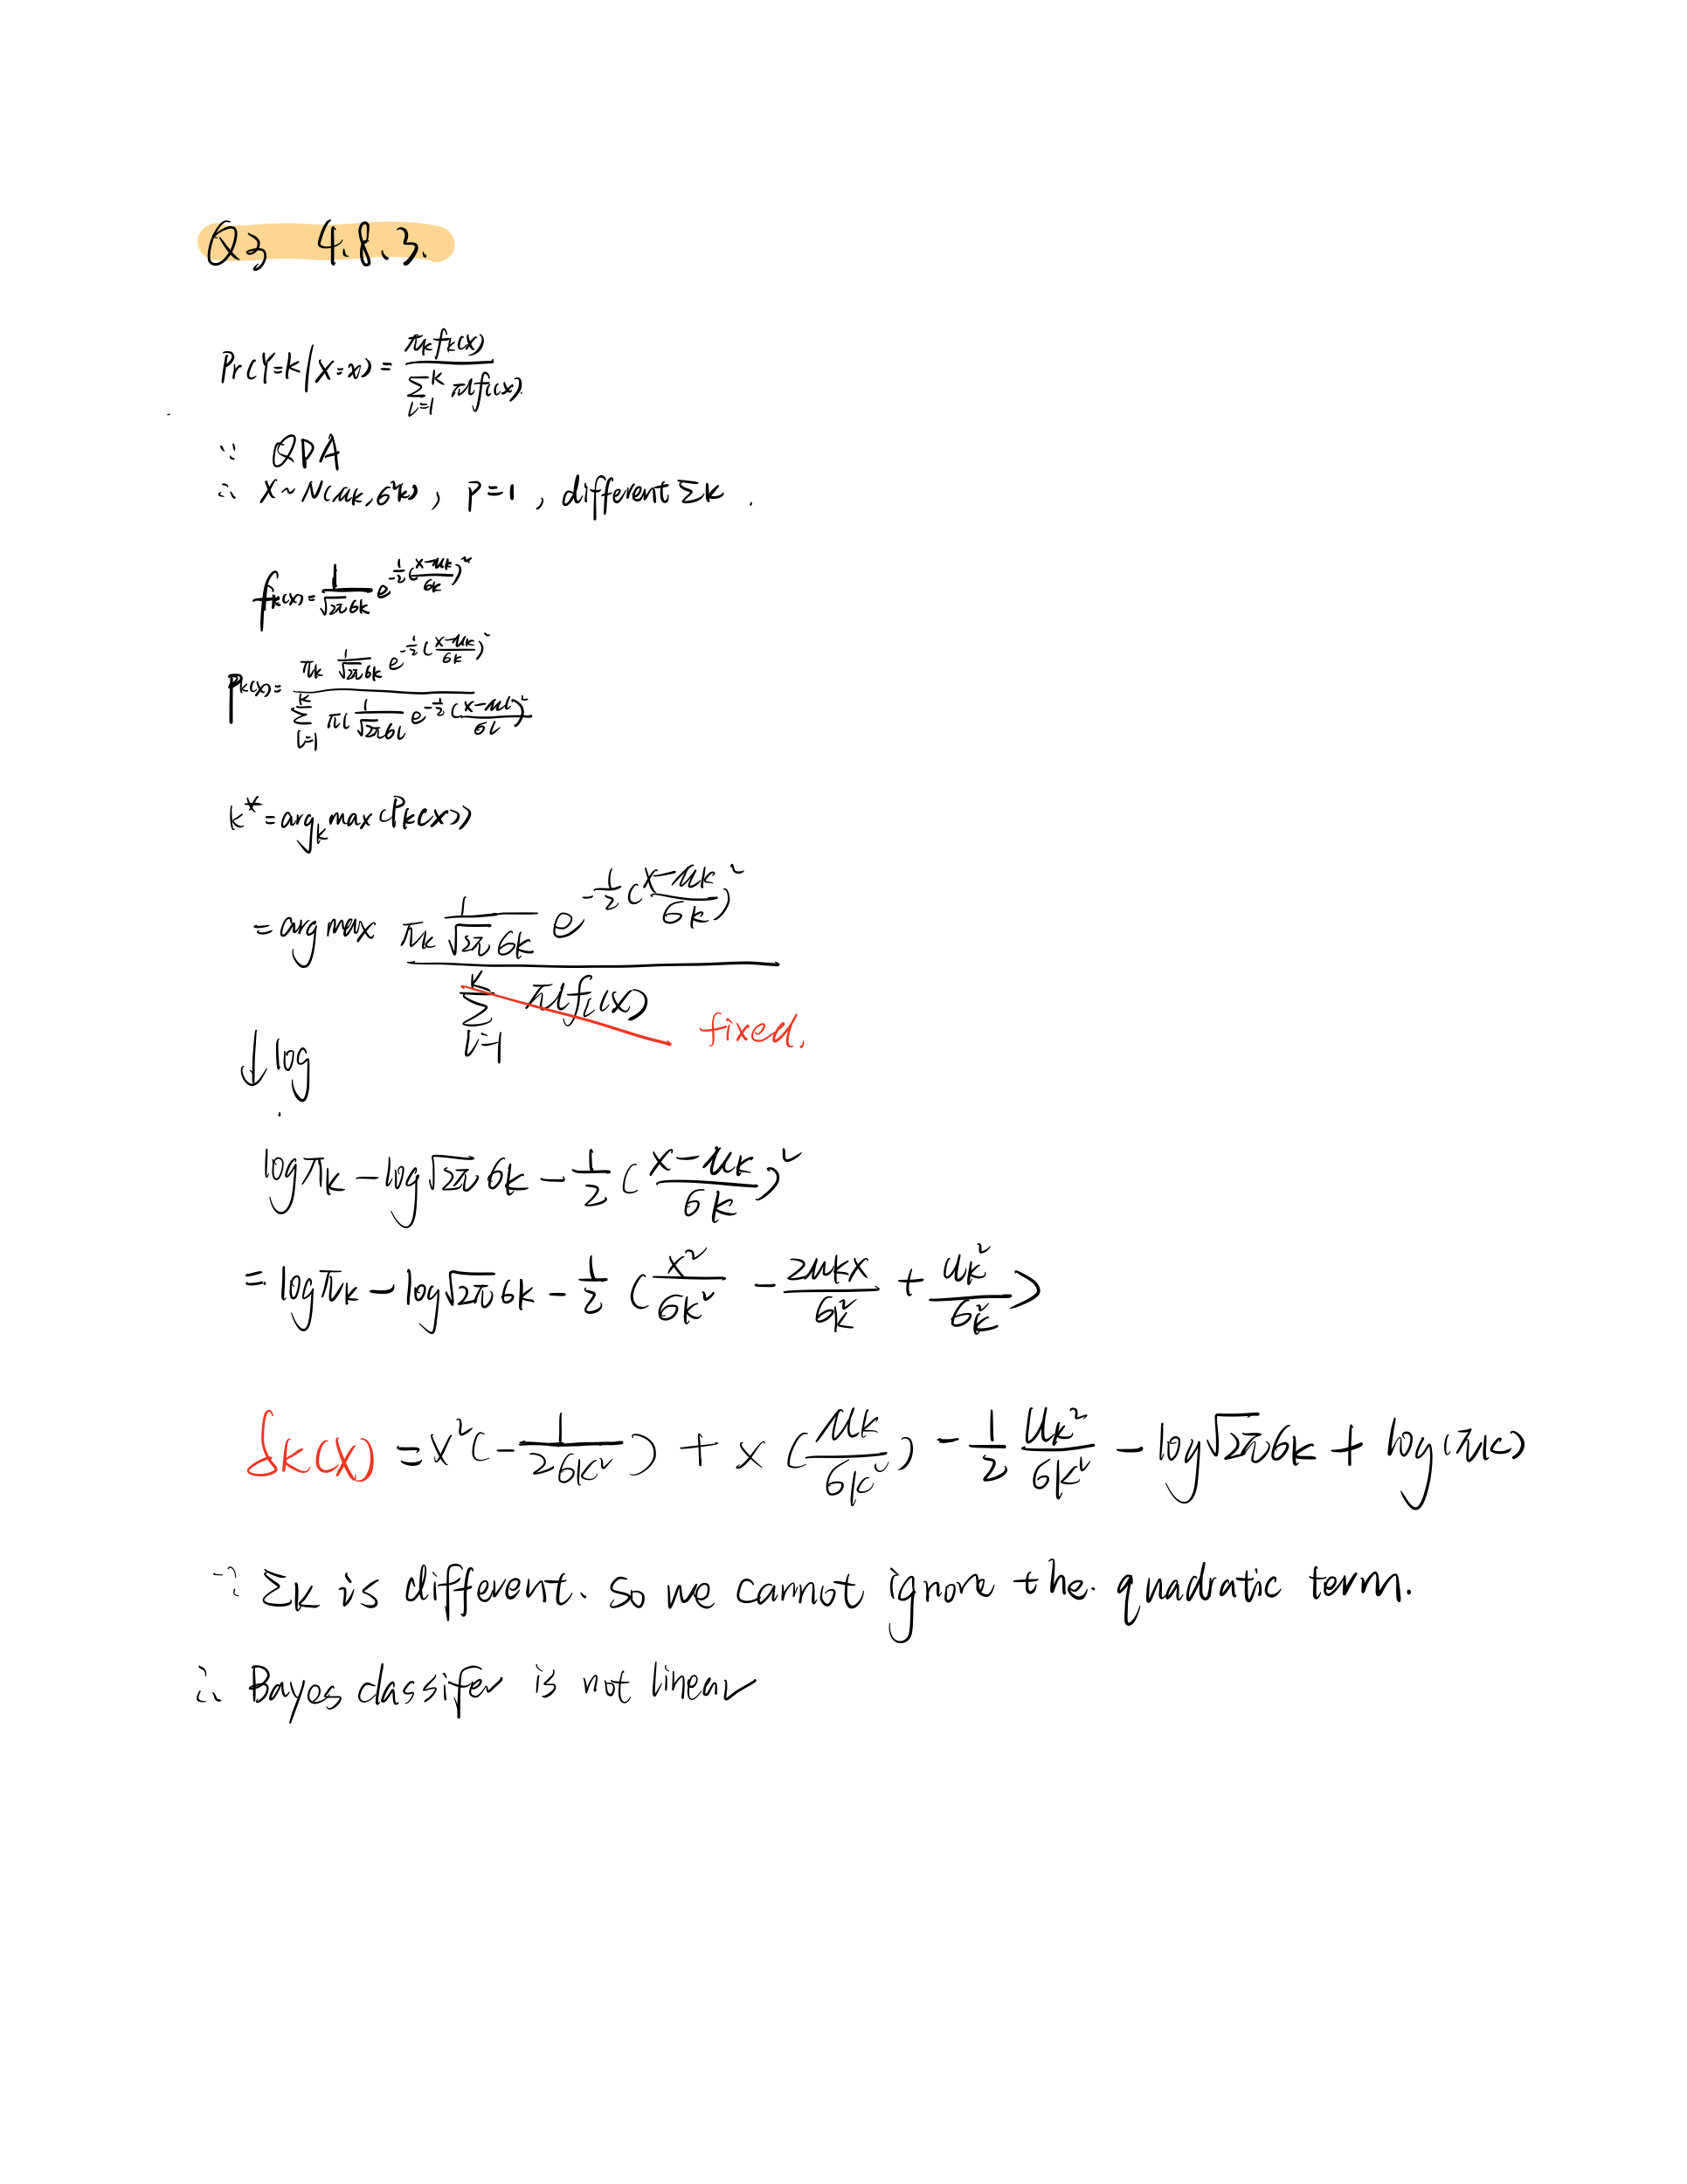 Q3 4.8.3.
Pr(Y=k|X=x) = πk fk(x) / Σ_{l=1}^{K} πl fl(x)
∵ QDA
∴ X ~ N(μk, σ²k), P=1, different Σk.
fk(x) = 1/(√2π σk) e^{-1/2 ((x-μk)/σk)²}
Pk(x) = πk 1/(√2π σk) e^{-1/2 ((x-μk)/σk)²} / Σ_{l=1}^{K} πl 1/(√2π σl) e^{-1/2 ((x-μl)/σl)²}
k* = arg_k max (Pk(x))
= arg max πk 1/(√2π σk) e^{-1/2 ((x-μk)/σk)²} / Σ_{l=1}^{K} πl fl(x) fixed.
↓ log
log πk - log √2π σk - 1/2 ((x-μk)/σk)²
= log πk - log √2π σk - 1/2 (x²/σk² - 2μkx/σk² + μk²/σk²)
δk(x) = x² (- 1/2σk²) + x (μk/σk²) - 1/2 μk²/σk² - log √2π σk + log(πk)
∵ Σk is different. so we cannot ignore the quadratic term.
∴ Bayes classifer is not linear